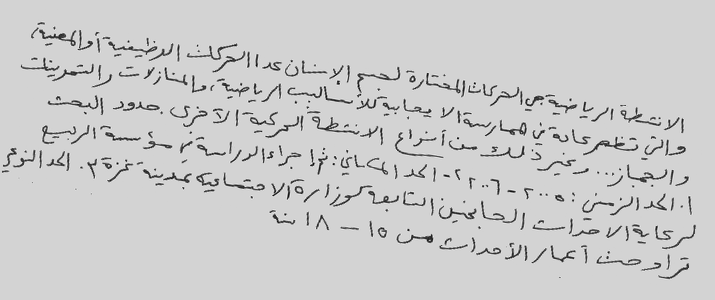 الانشطة الرياضية هي الحركات المختارة لجسم الإنسان عدا الحركات الوظيفية أو المهنية،
والتي تظهر عاية في الممارسة الايجابية للأساليب الرياضية، والمنازلات والتمرينات
والجمباز... وغير ذلك من أنواع الانشطة الحركية الأخرى. حدود البحث
١. الحد الزمني: ٢٠٠٥ - ٢٠٠٦ ٢- الحد المكاني: تم اجراء الدراسة في مؤسسة الربيع
لرعاية الاحداث الجانحين التابعة لوزارة الاجتماعية بمدينة غزة ٣. الحد النوعي
تراوحت أعمار الأحداث من ١٥ - ١٨ سنة